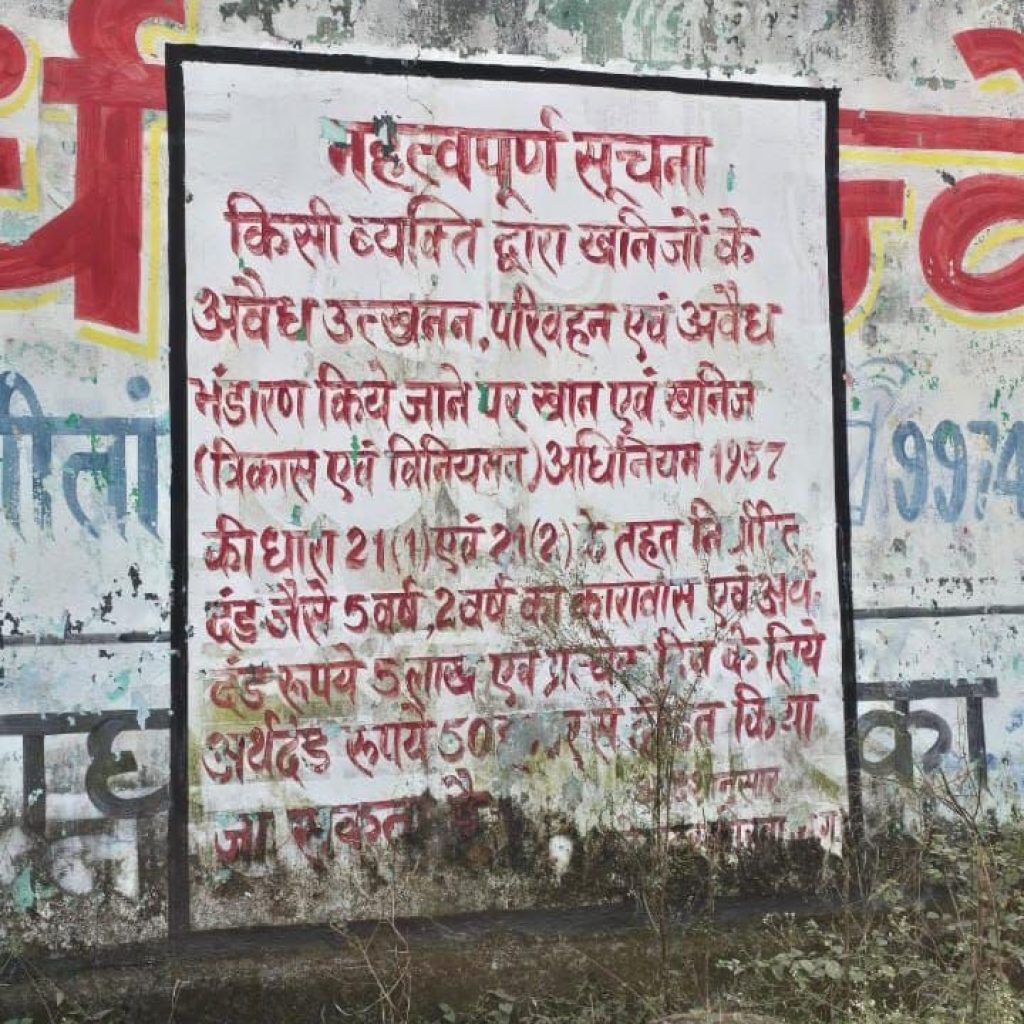 महत्वपूर्ण सूचना
किसी व्यक्ति द्वारा खनिजों के
अवैध उत्खनन, परिवहन एवं अवैध
भंडारण किये जाने पर खान एवं खनिज
(विकास एवं विनियमन) अधिनियम 1957
की धारा 21(1) एवं 21(2) के तहत
दंड जैसे 5 वर्ष, 2 वर्ष का कारावास एवं अर्थ-
दंड रूपये 5 लाख एवं प्रत्येक दिन के लिये
अर्थदंड रूपये 50 से दंडित किया
जा सकता है
9974